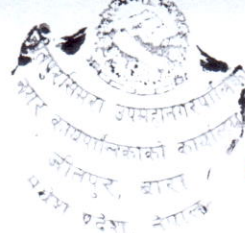 उपमहानगरपालिका
नगर कार्यपालिकाको कार्यालय
जीतपुर, बारा
प्रदेश नेपाल